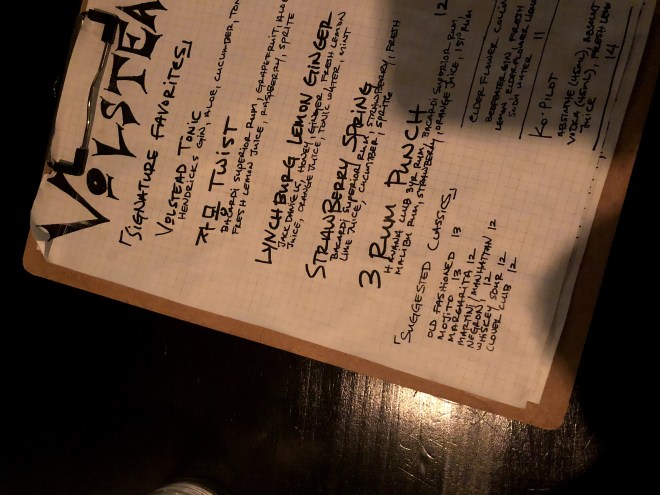 VOLSTEA
「SIGNATURE FAVORITES」
VOLSTEAD TONIC
HENDRICKS GIN, ALOE, CUCUMBER, TON
자몽 TWIST
BACARDI SUPERIOR RUM, GRAPEFRUIT, ALOE
FRESH LEMON JUICE, RASPBERRY, SPRITE
LYNCHBURG LEMON GINGER
JACK DANIELS, HONEY, GINGER, FRESH LEMON
JUICE, ORANGE JUICE, TONIC WATER, MINT
STRAWBERRY SPRING
BACARDI SUPERIOR RUM, STRAWBERRY, FRESH
LIME JUICE, CUCUMBER, SPRITE 12
3 RUM PUNCH
HAVANA CLUB 3YR RUM, BACARDI SUPERIOR RUM,
MALIBU RUM, STRAWBERRY, ORANGE JUICE, 151° RUM
「SUGGESTED CLASSICS」
OLD FASHIONED 13
MOJITO 13
MARGARITA 12
MARTINI / MANHATTAN 12
NEGRONI 12
WHISKEY SOUR 12
CLOVER CLUB 12
ELDER FLOWER COLLI
FRESH
LEMON, ELDERFLOWER
SODA WATER 11
KO-PILOT
ABSTHINE
VODKA
JUICE 14